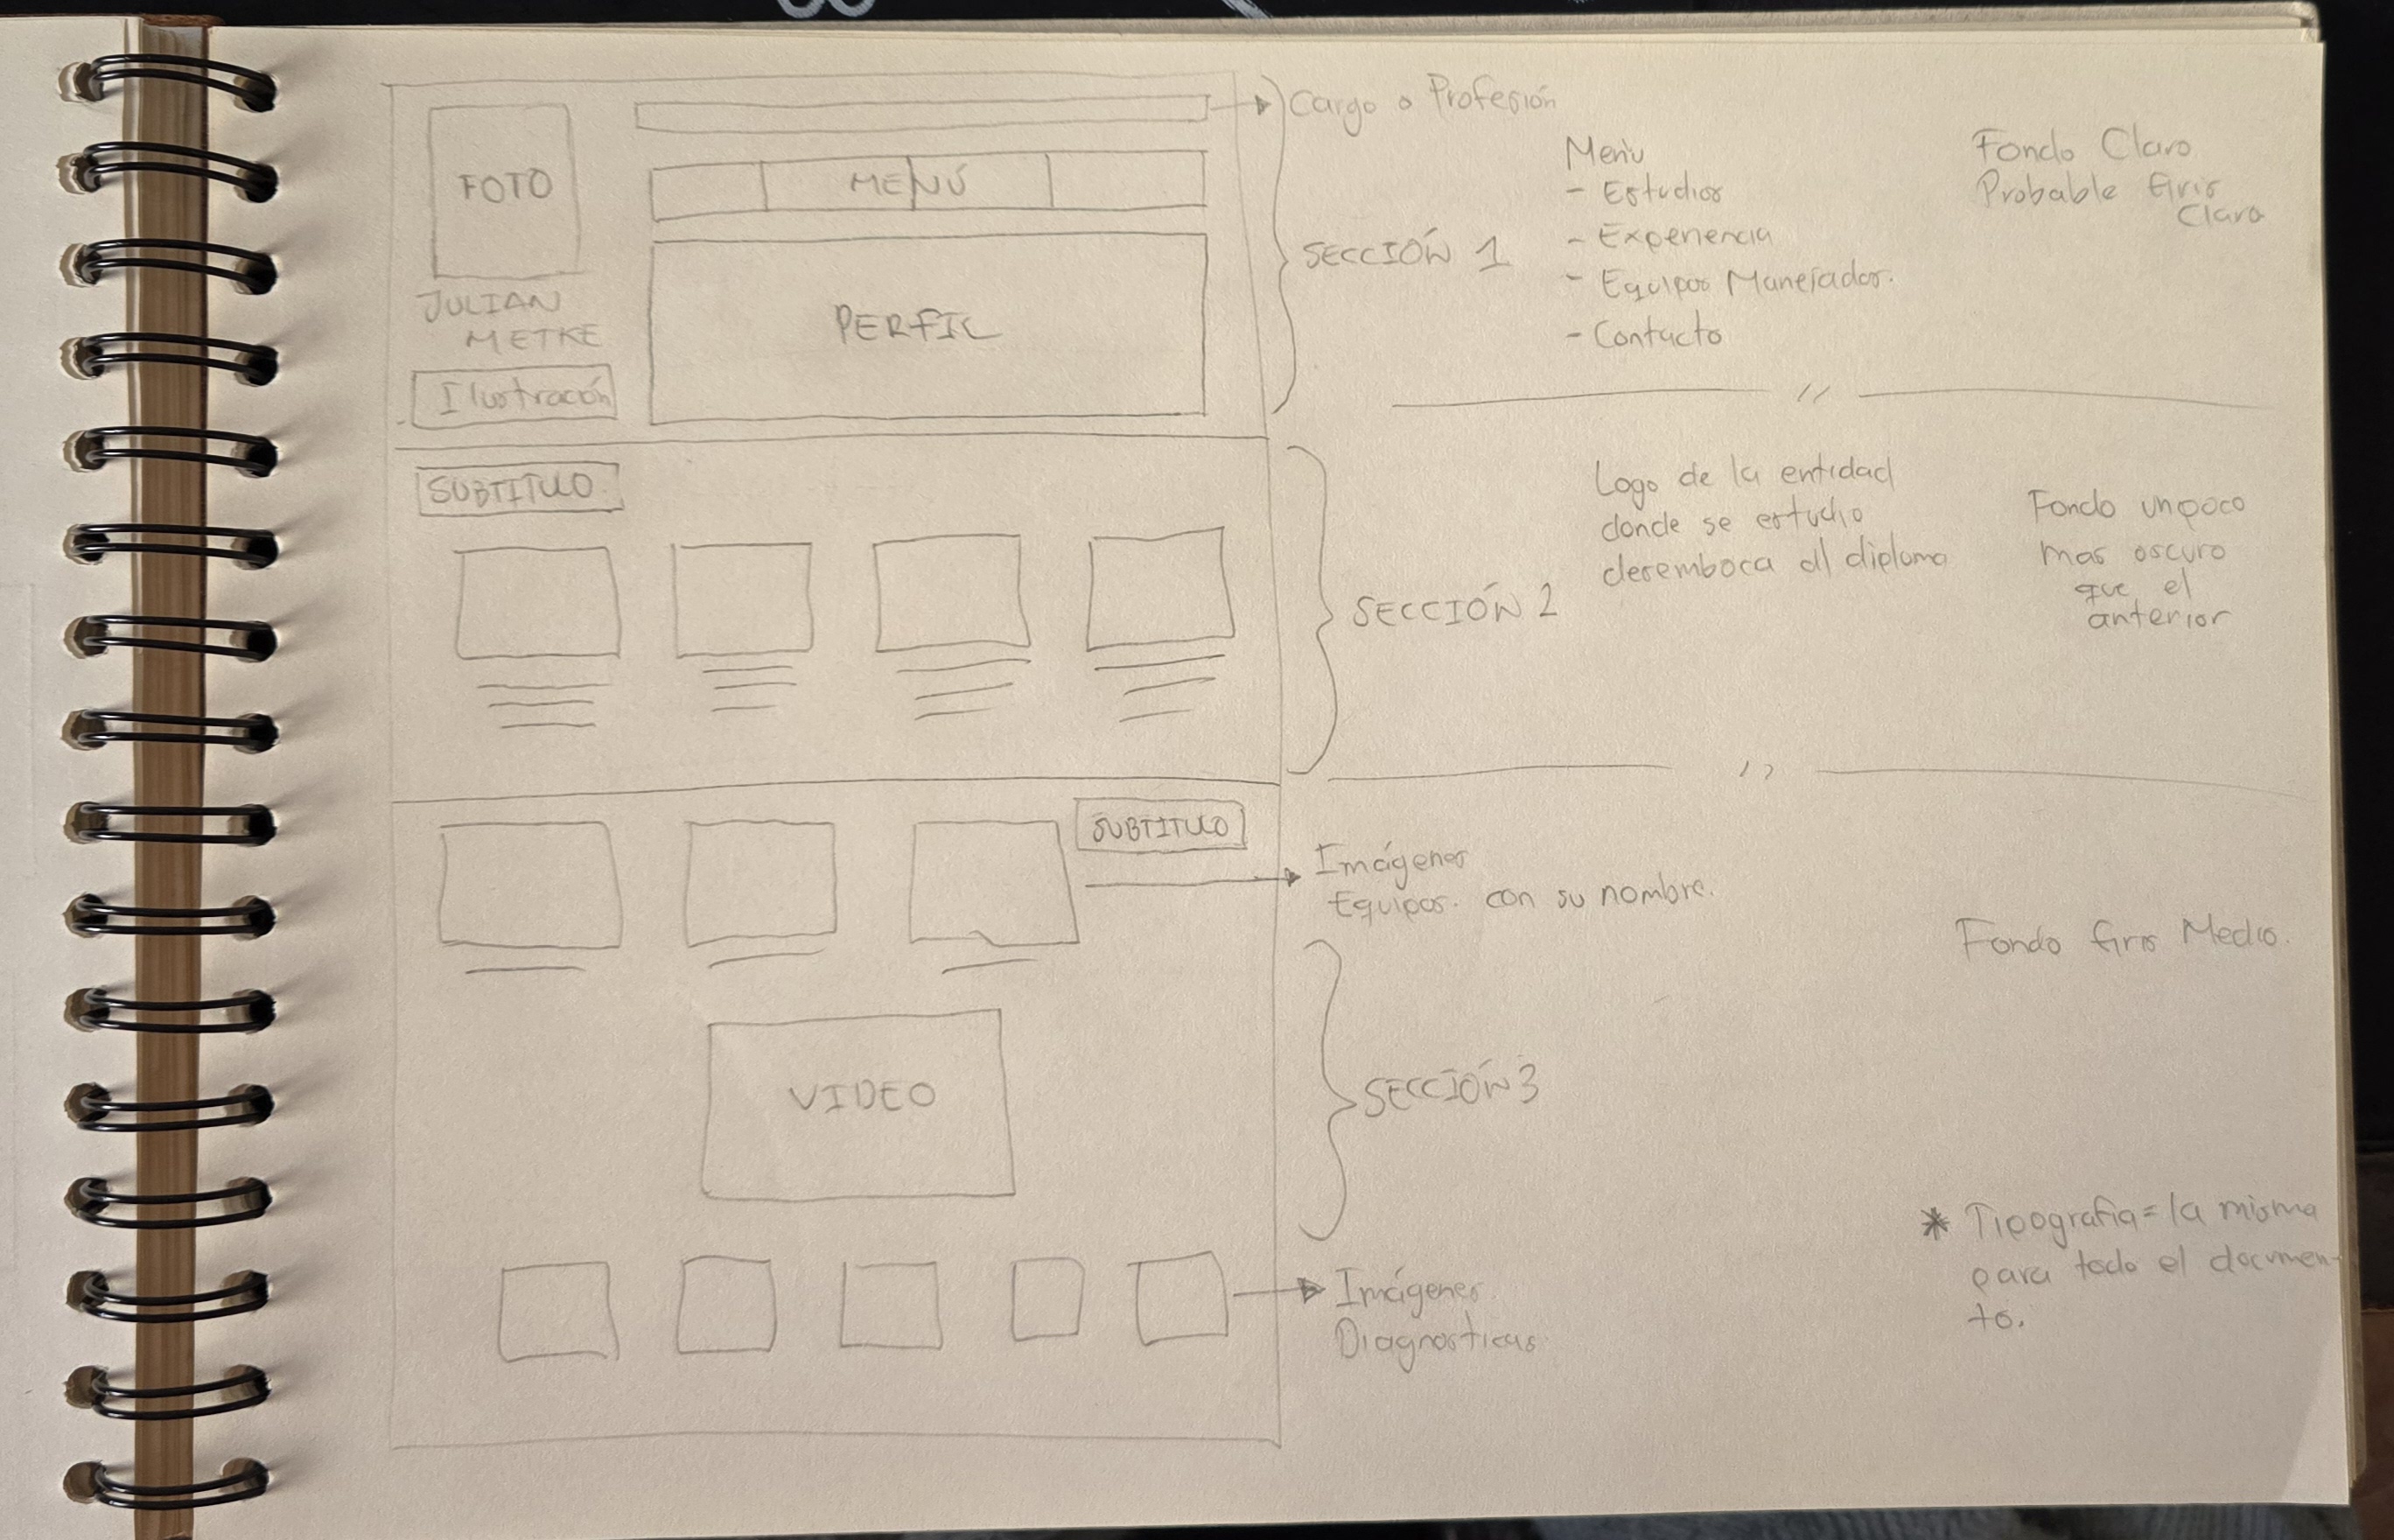 FOTO
JULIAN
METKE
Ilustración
MENÚ
PERFIL
Cargo o Profesión
SECCIÓN 1
Menu
- Estudios
- Experiencia
- Equipos Manejados.
- Contacto
Fondo Claro
Probable Gris
Claro
SUBTITULO
SECCIÓN 2
Logo de la entidad
donde se estudio
desemboca al diploma
Fondo un poco
mas oscuro
que el
anterior
SUBTITULO
Imágenes
Equipos. con su nombre.
VIDEO
SECCIÓN 3
Fondo Gris Medio.
Imágenes
Diagnosticas
* Tipografia = la misma
para todo el documen-
to.